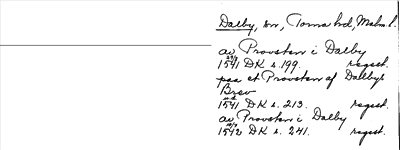 Dalby, sn, Torna hd, Malm. l.
av Provsten i Dalby
1541 DK s. 199. regest.
paa et Provsten af Dalbys
Brev
1541 DK s. 213. regest.
av Provsten i Dalby
1542 DK s. 241. regest.